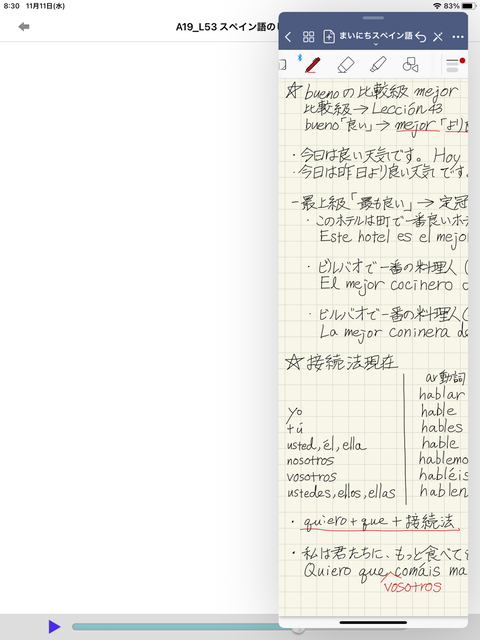 8:30 11月11日(水) 83%
A19_L53 スペイン語の
まいにちスペイン語
☆ buenoの比較級 mejor
比較級→Lección 43
bueno「良い」→ mejor「より
・今日は良い天気です。Hoy
・今日は昨日より良い天気です。
ー最上級「最も良い」→ 定冠
・このホテルは町で一番良いホテ
Este hotel es el mejo
・ビルバオで一番の料理人(
El mejor cocinero
・ビルバオで一番の料理人(
La mejor coninera de
☆接続法現在
ar動詞
hablar
yo hable
tú hables
usted, él, ella hable
nosotros hablemo
vosotros habléis
ustedes, ellos, ellas hablen
・quiero + que + 接続法
・私は君たちに、もっと食べて
Quiero que comáis ma
vosotros